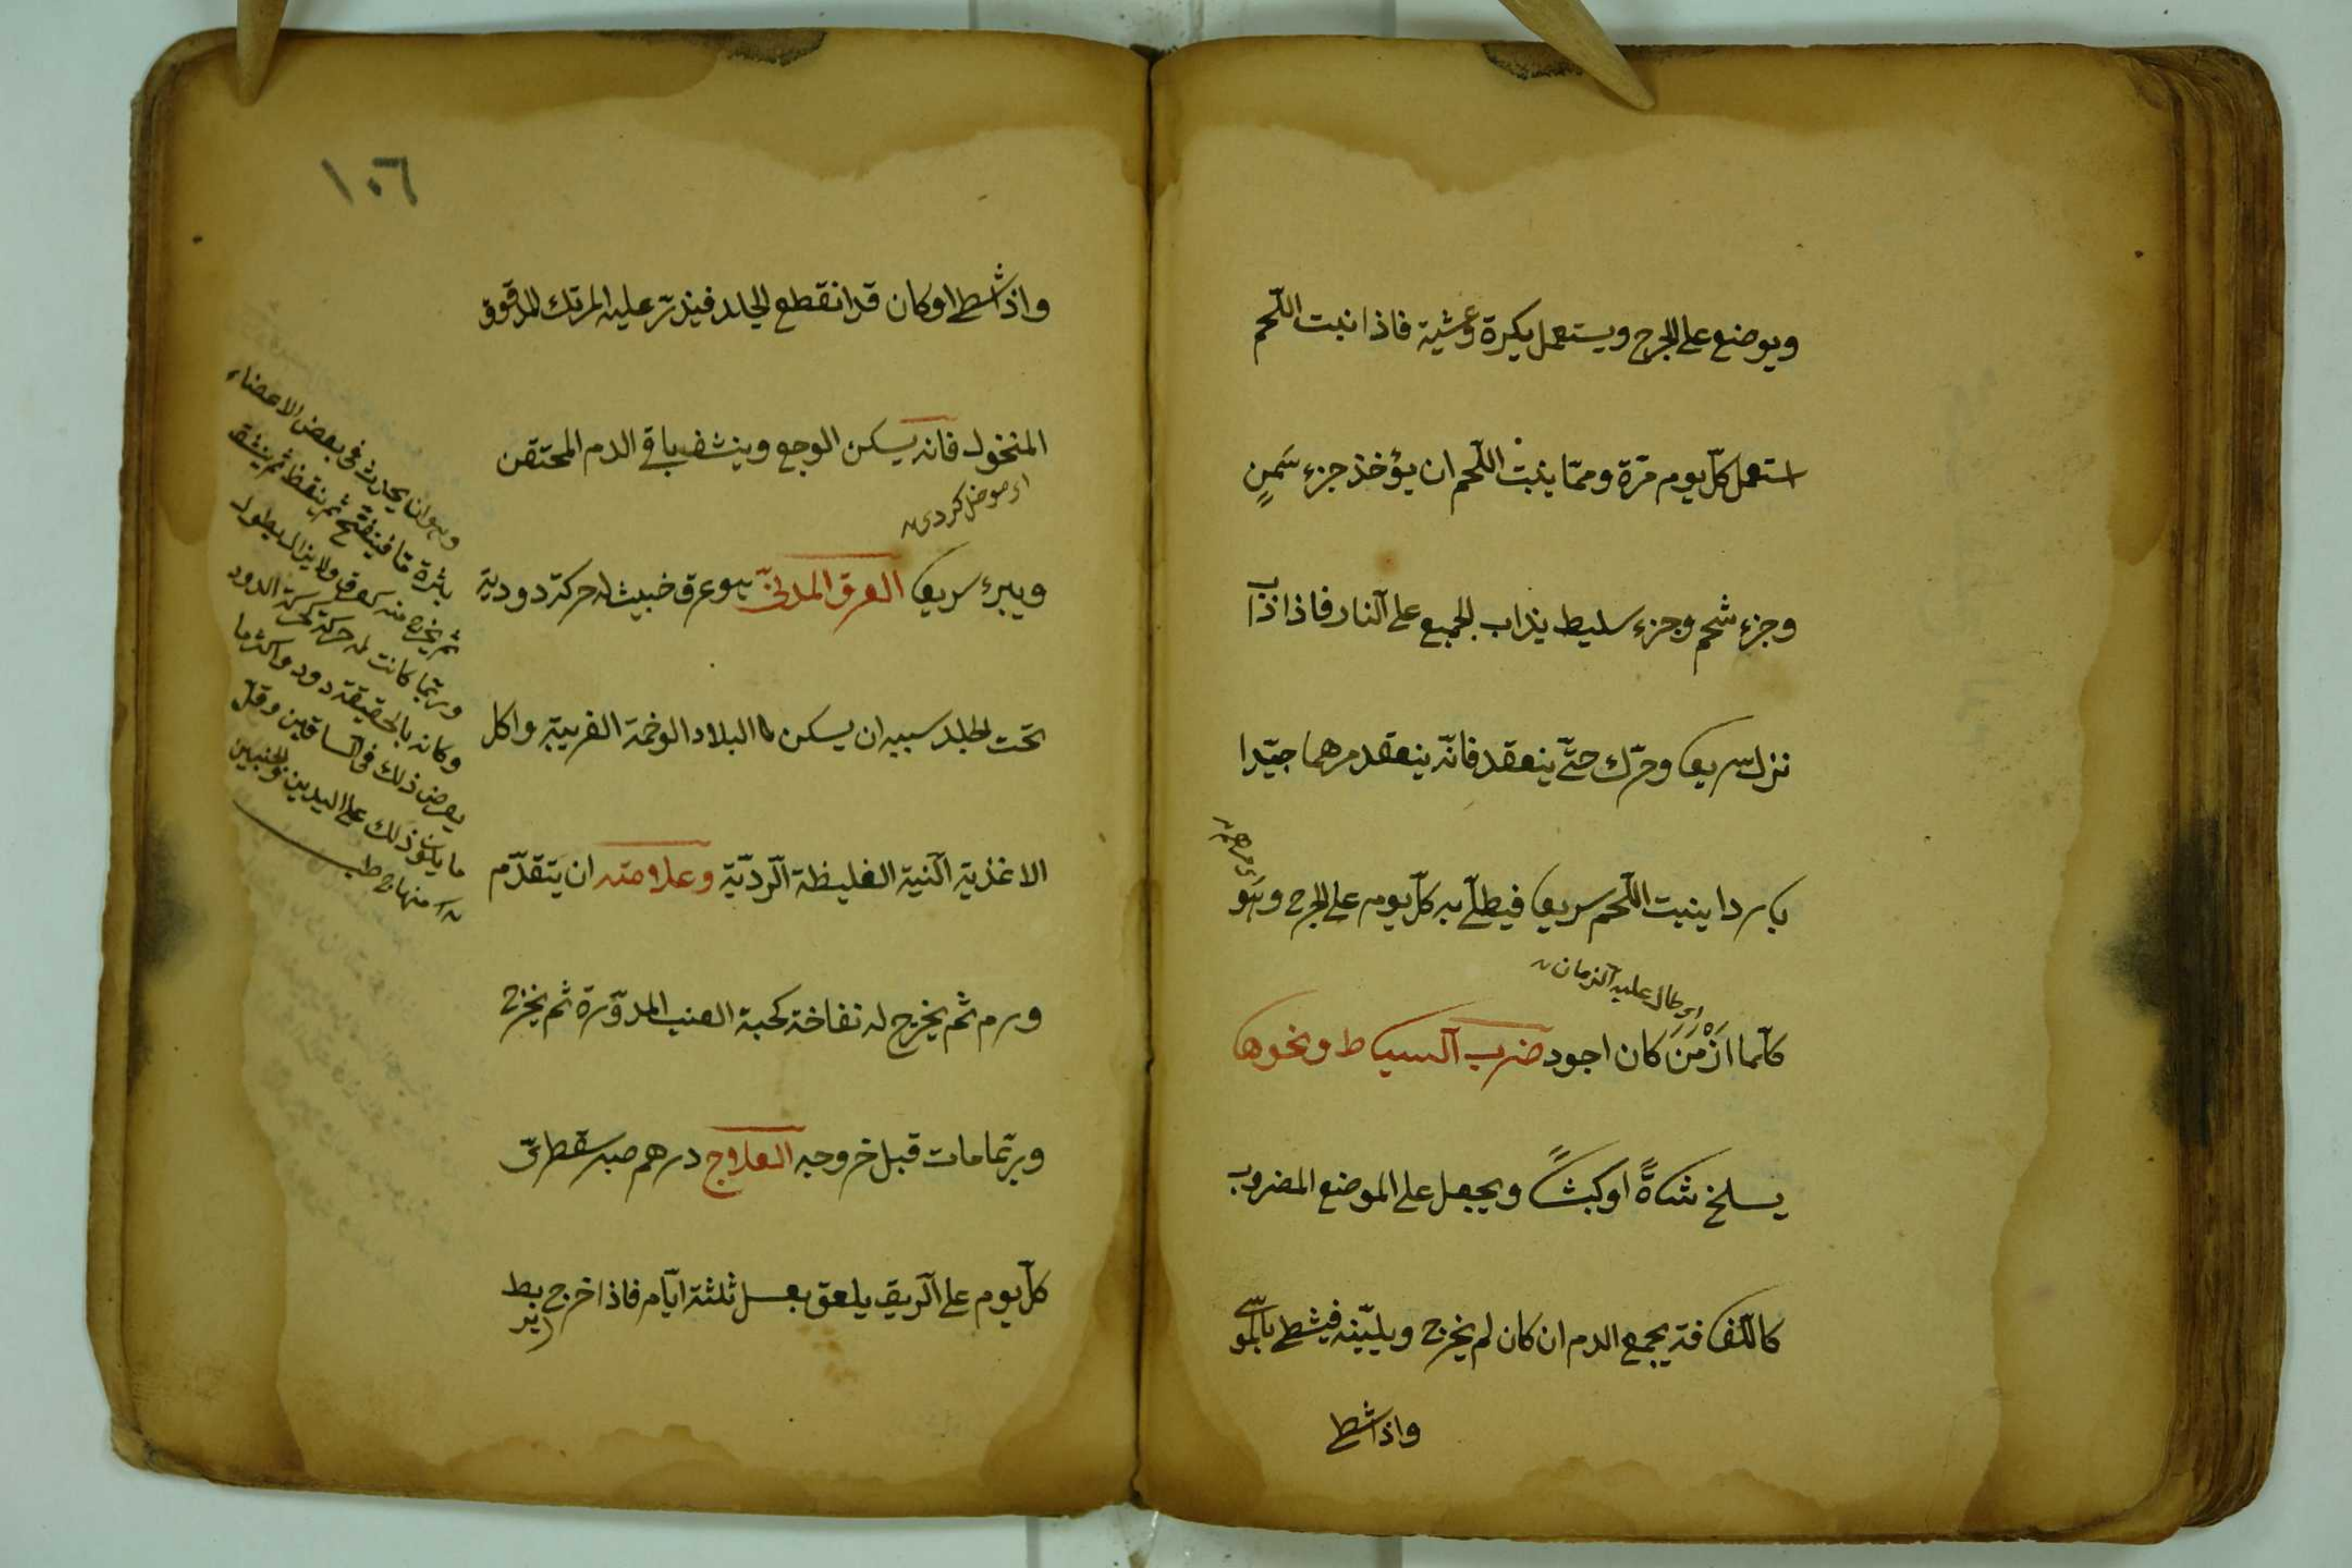 ويوضع على الجرح ويستعمل بكرة وعشية فاذا نبت اللّحم
استعمل كلّ يوم مرّة وممّا ينبت اللّحم ان يؤخذ جزء سَمنٍ
وجزء شحم وجزء سليط يذاب الجميع على النار فاذا ذاب
نزل سريعا وحرّك حتّى ينعقد فانّه ينعقد مرهما جيّدا
باردا ينبت اللّحم سريعا فيطلى به كلّ يوم على الجرح وهو
مرهم
اى طال عليه الزمان
كلّما اَزْمَنَ كان اجود ضرب السياط ونحوها
يسلخ شاةً او كبشاً ويجعل على الموضع المضروب
كاللّفافة يجمع الدم ان كان لم يخرج ويليّنه فيشط بالموسى
واذا شط
١٠٦
واذا شط او كان قد انقطع الجلد فيذرّ عليه المرتك المدقوق
المنخول فانه يسكن الوجع وينشف باقى الدم المحتقن
اى موضل كردى
ويبرء سريعا العرق المدنىّ هو عرق خبيث له حركة دودية
تحت الجلد سببه ان يسكن البلاد الوخمة الغريبة واكل
الاغذية النية الغليظة الرديّة وعلامته ان يتقدّم
ورم ثم يخرج له نفاخة كحبة العنب المدوّرة ثم يخرج
وربّما مات قبل خروجه العلاج درهم صبر سقطرىّ
كلّ يوم على الريق يلعق بعسل ثلثة ايّام فاذا خرج يربط
وهو ان يحدث فى بعض الاعضاء
بثرة ما فينفتح ثم ينفط ثم ينثقب
ثم يخرج منه كعرق ولا يزال يطول
وربّما كانت له حركة كحركة الدود
وكانه بالحقيقة دود واكثر ما
يعرض ذلك فى الساقين وقلّ
ما يكون ذلك على اليدين والجنبين
منهاج طب